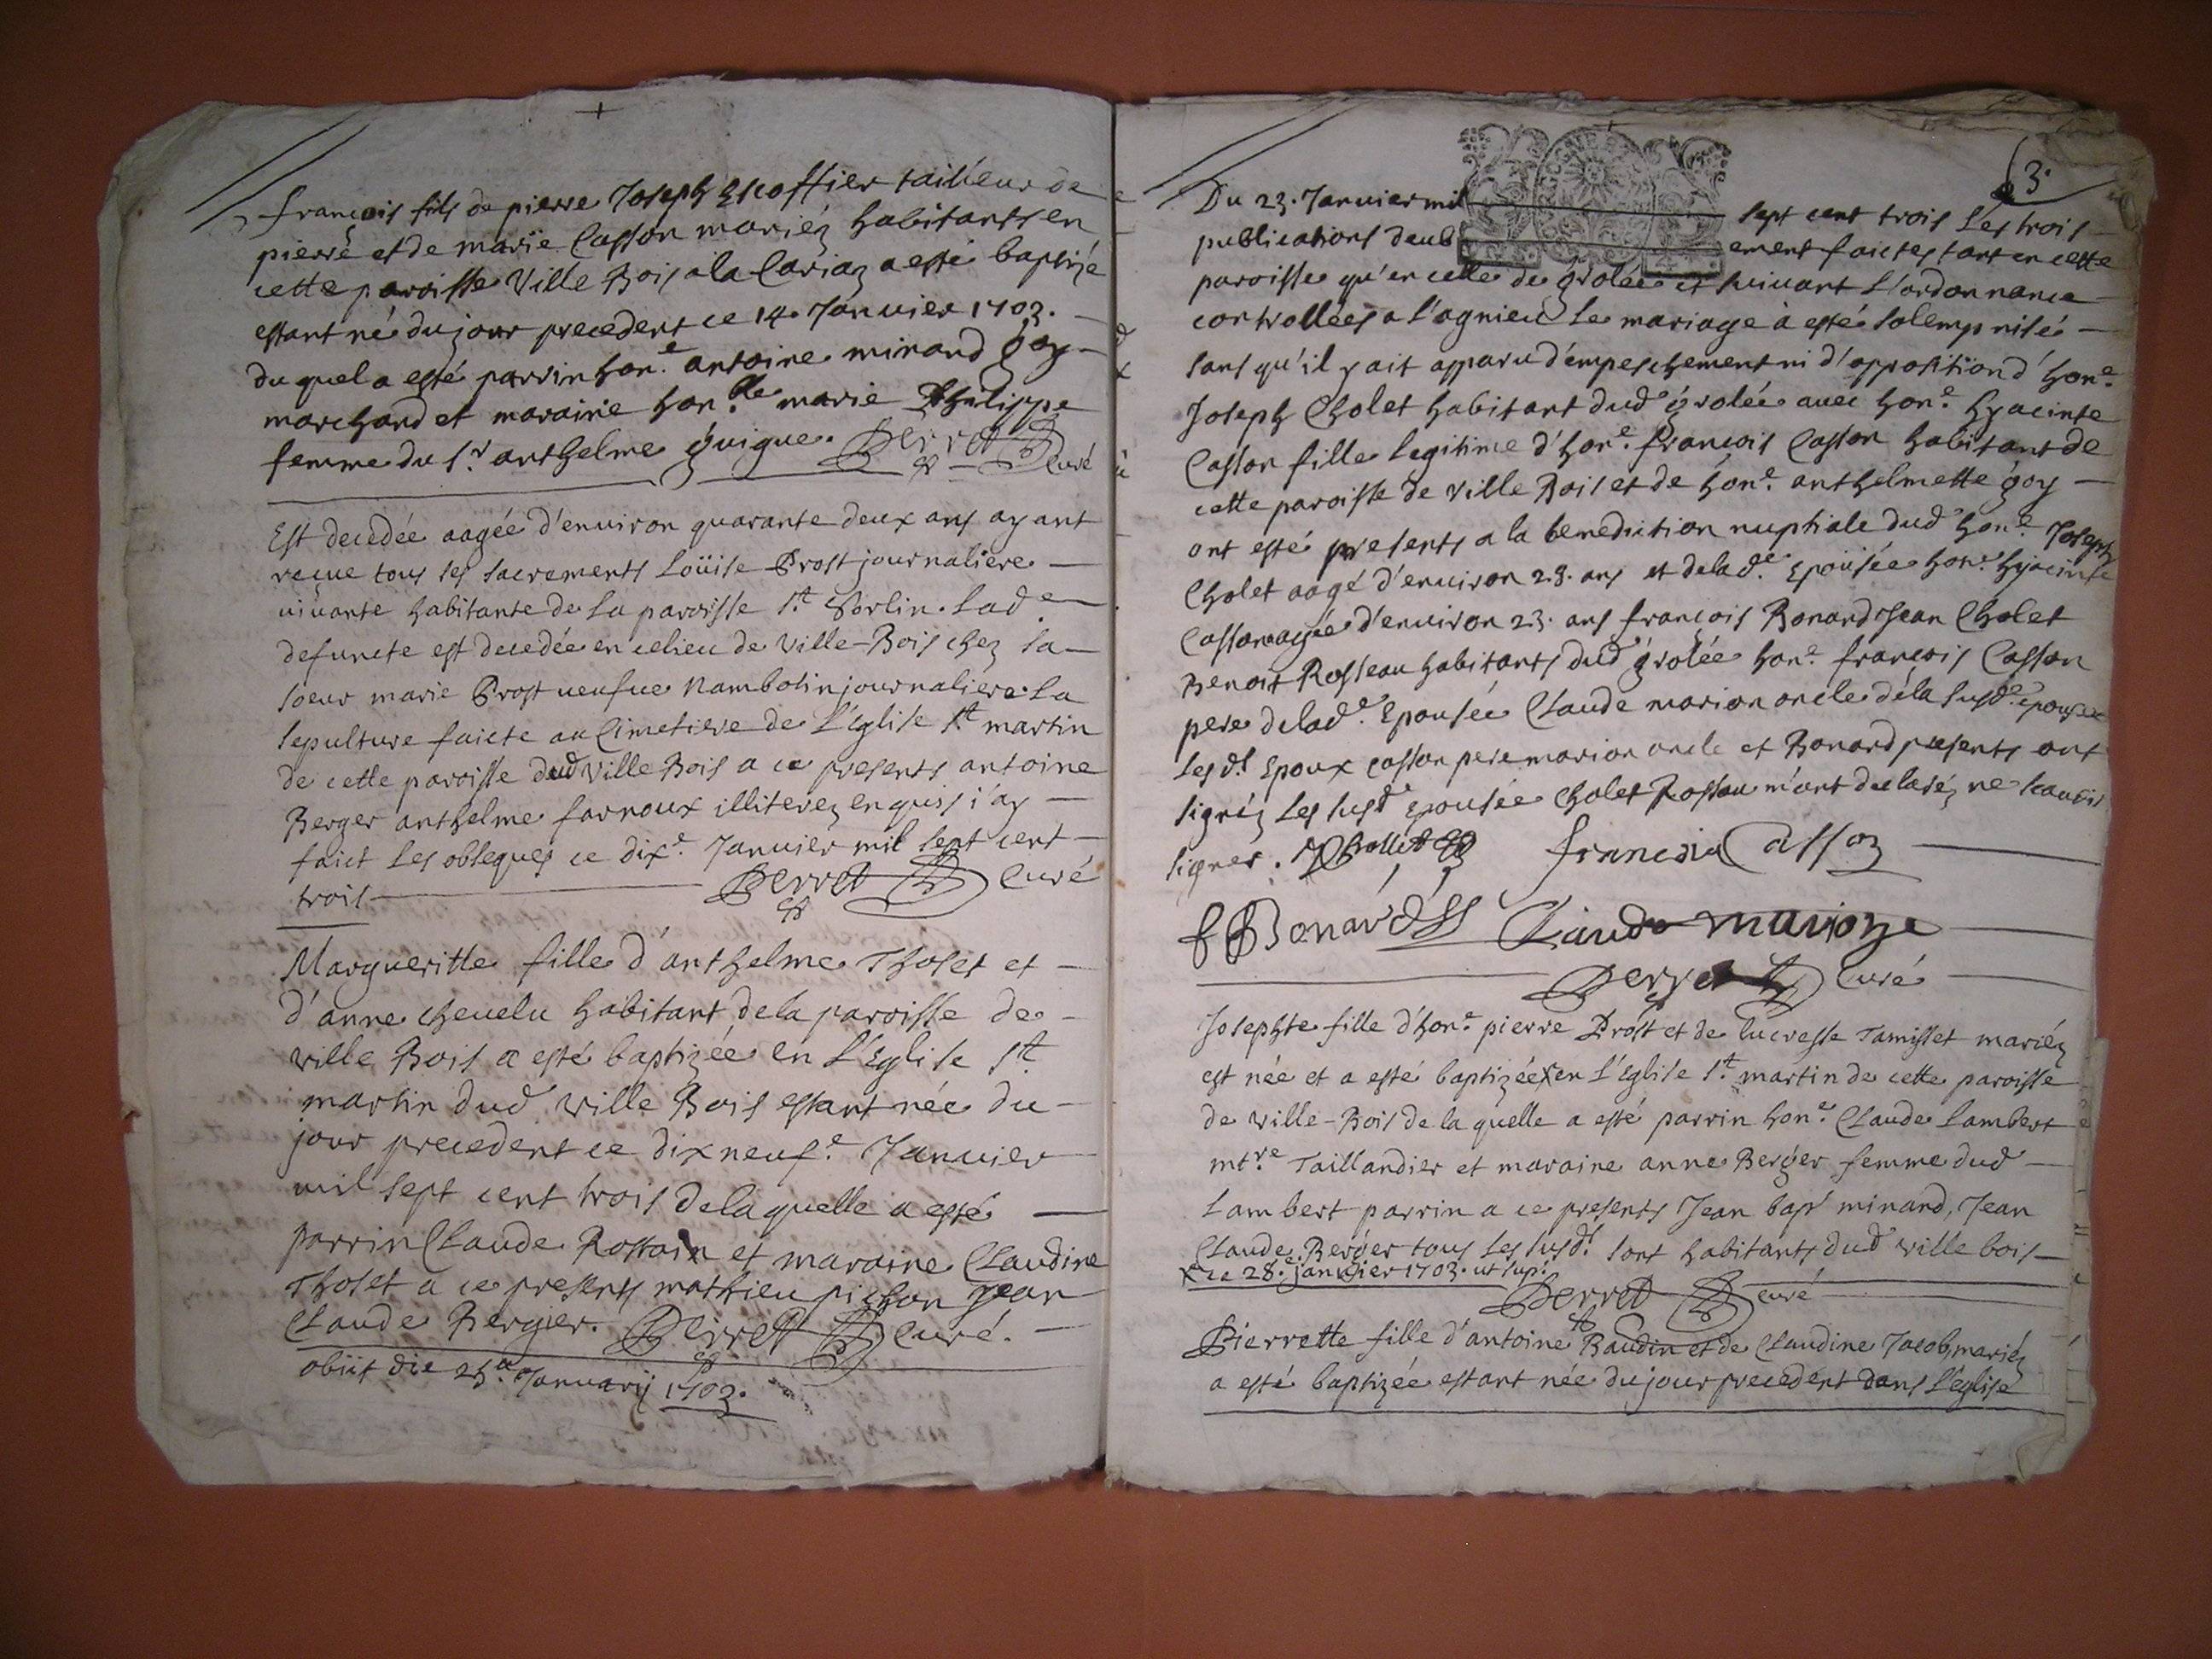 françois fils de pierre Joseph Escoffier tailleur de
pierre et de marie Casson mariéz habitants en
cette paroisse Ville Bois a la Cariaz a esté baptizé
estant né du jour precedent ce 14. Januier 1703.
du quel a esté parrin hon.e antoine minand goy
marchand et maraine hon.ble marie Philippe
femme du s.r anthelme guigue. Perret Curé
Est decedée aagée d'enuiron quarante deux ans ayant
reçue tous ses sacrements Loüise Prost journaliere
uiuante habitante de la paroisse s.t Sorlin. lad.e
defuncte est decedée en ce lieu de Ville-Bois chez sa
soeur marie Prost ueufue Nambotin journaliere. La
sepulture faicte au Cimetiere de L'Eglise s.t martin
de cette paroisse dud Ville Bois a ce presents antoine
Berger anthelme farnoux illiterez enquis j'ay
faict les obseques ce dix.e Januier mil sept cent
trois Perret Curé
Margueritte fille d'anthelme Tholet et
d'anne cheuelu habitant de la paroisse de
ville Bois a esté baptizée en L'Eglise s.t
martin dud ville Bois estant née du
jour precedent ce dix neuf.e Januier
mil sept cent trois de laquelle a esté
parrin Claude Rostain et maraine Claudine
Tholet a ce presents mathieu pichon jean
Claude Bergier. Perret Curé.
obiit die 25.a Januarij 1703.
3.
Du 23. Januier mil sept cent trois Les trois
publications deub ement faictes tant en cette
paroisse qu'en celle de grolée et suiuant L'ordonnance
controllées a L'agnieu Le mariage à esté solempnisé
sans qu'il y ait apparu d'empeschement ni d'opposition d'hon.e
Joseph Cholet habitant dud grolée auec hon.e hyacinte
Casson fille legitime d'hon.e françois Casson habitant de
cette paroisse de Ville Bois et de hon.e anthelmette goy
ont esté presents a la benediction nuptiale dud hon.e Joseph
Cholet aagé d'enuiron 28. ans et de lad.e Epousée hon.e hyacinte
Casson aagée d'enuiron 23. ans françois Bonard Jean Cholet
Benoit Rosseau habitants dud grolée hon.e françois Casson
pere de lad.e Epousée Claude marion oncle de la susd.e epousée
Les d.s Epoux casson pere marion oncle et Bonard presents ont
signéz Les susd.e epousée cholet Rossau m'ont declaréz ne scauoir
signer. francois Casson
f Bonard Claude marion
Perret Curé
Josephte fille d'hon.e pierre Prost et de lucresse Tamisset mariéz
est née et a esté baptizée x en L'Eglise s.t martin de cette paroisse
de Ville-Bois de la quelle a esté parrin hon.e Claude Lambert
mt.re Taillandier et maraine anne Berger femme dud
Lambert parrin a ce presents Jean bap.t minand, Jean
Claude Berger tous les susd.s sont habitants dud ville bois
x ce 28.e januier 1703. ut sup.
Perret curé
Pierrette fille d'antoine Baudin et de Claudine Jacob mariéz
a esté baptizée estant née du jour precedent dans L'eglise